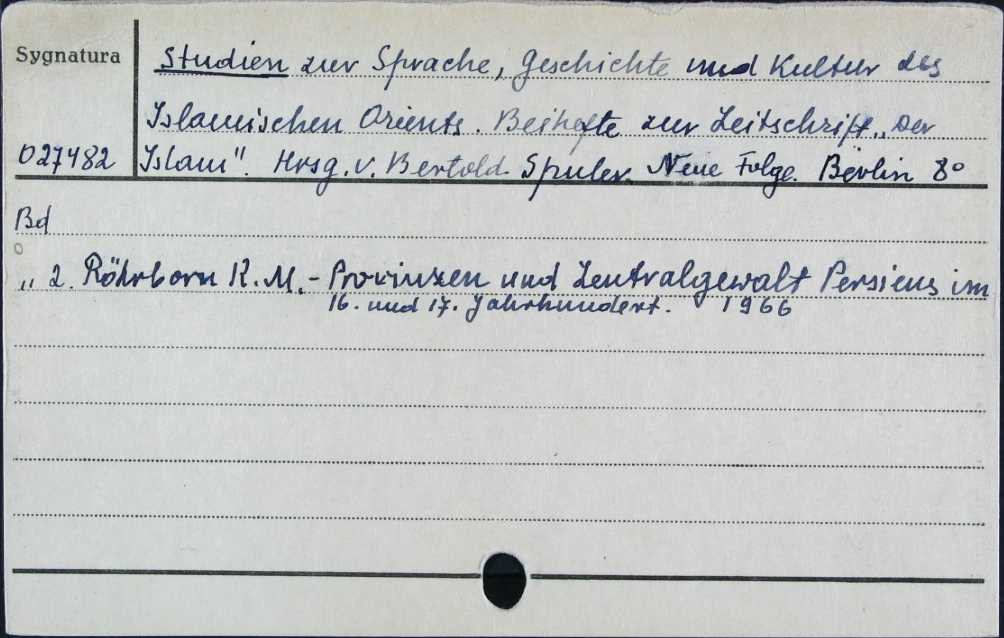 Sygnatura
Studien zur Sprache, Geschichte und Kultur des
Islamischen Orients. Beihefte zur Zeitschrift „Der
027482
Islam". Hrsg. v. Bertold Spuler. Neue Folge. Berlin 8°
Bd
„ 2. Röhrborn K.M. - Provinzen und Zentralgewalt Persiens im
16. und 17. Jahrhundert. 1966